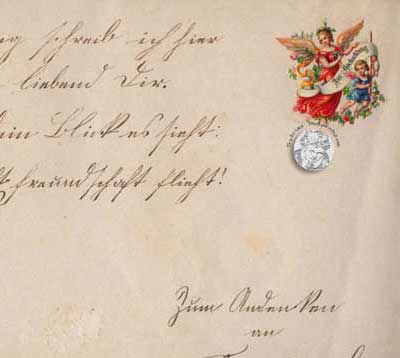 schreib ich hier
liebend Dir.
Blick es sieht:
Freundschaft flieht!
Zum Andenken
an